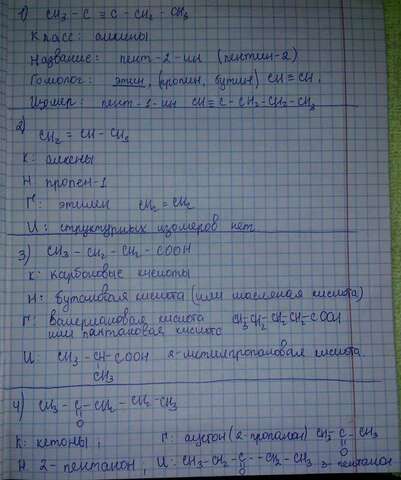 1) CH₃ - C ≡ C - CH₂ - CH₃
Класс: алкины
Название: пент-2-ин (пентин-2)
Гомолог: этин, (пропин, бутин) CH≡CH,
Изомер: пент-1-ин CH≡C-CH₂-CH₂-CH₃
2)
CH₂ = CH - CH₃
К: алкены
Н: пропен-1
Г: этилен CH₂ = CH₂
И: структурных изомеров нет
3) CH₃ - CH₂ - CH₂ - COOH
К: карбоновые кислоты
Н: Бутановая кислота (или масляная кислота)
Г: Валериановая кислота CH₃CH₂CH₂CH₂-COOH
или пантановая кислота
И: CH₃ - CH - COOH 2-метилпропановая кислота
CH₃
4) CH₃ - C - CH₂ - CH₂ - CH₃
O
К: кетоны; Г: ацетон (2-пропанон) CH₃ - C - CH₃
O
Н: 2-пентанон; И: CH₃-CH₂-C--CH₂-CH₃ 3-пентанон
O